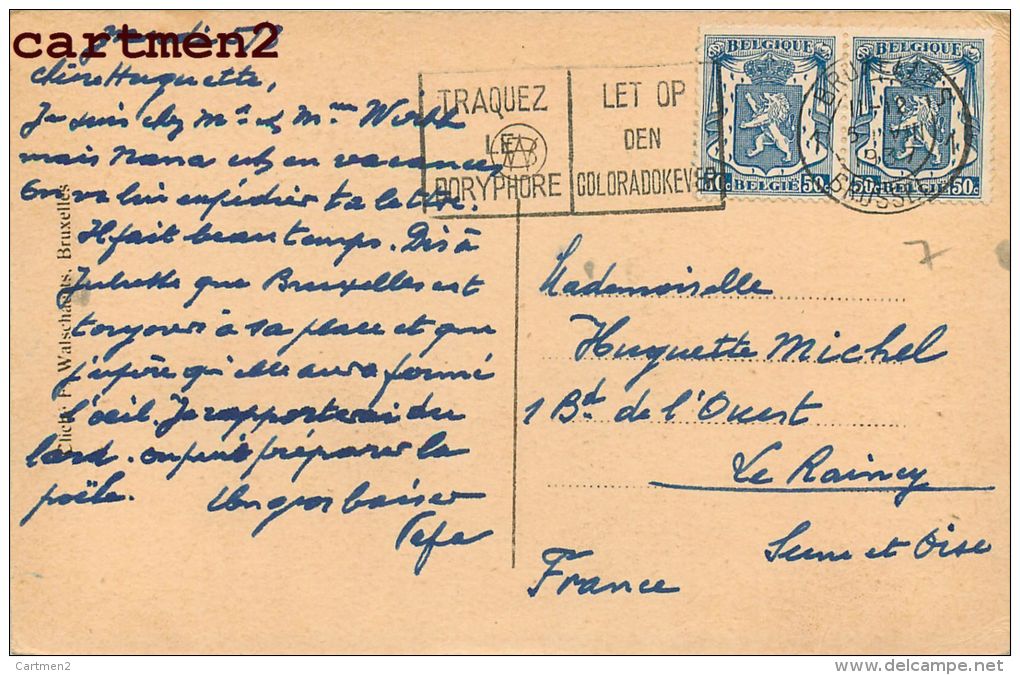 cartmen2
chère Huguette,
Je suis chez Mr et Mme Worth
mais Nana est en vacances
On va lui expédier ta lettre.
Il fait beau temps. Dis à
Juliette que Bruxelles est
toujours à sa place et que
j'espère qu'elle aura fermé
l'oeil. Je rapporterai du
lard. on peut préparer la
poële. Un gros baiser
Papa
Cliché F. Walschaerts. Bruxelles
TRAQUEZ
LE
DORYPHORE
LET OP
DEN
COLORADOKEVER
BELGIQUE
50c BELGIË 50c
BELGIQUE
50c BELGIË 50c
BRUXELLES
BRUSSEL
7
Mademoiselle
Huguette Michel
1 Bd. de l'Ouest
Le Raincy
Seine et Oise
France
Cartmen2
www.delcampe.net